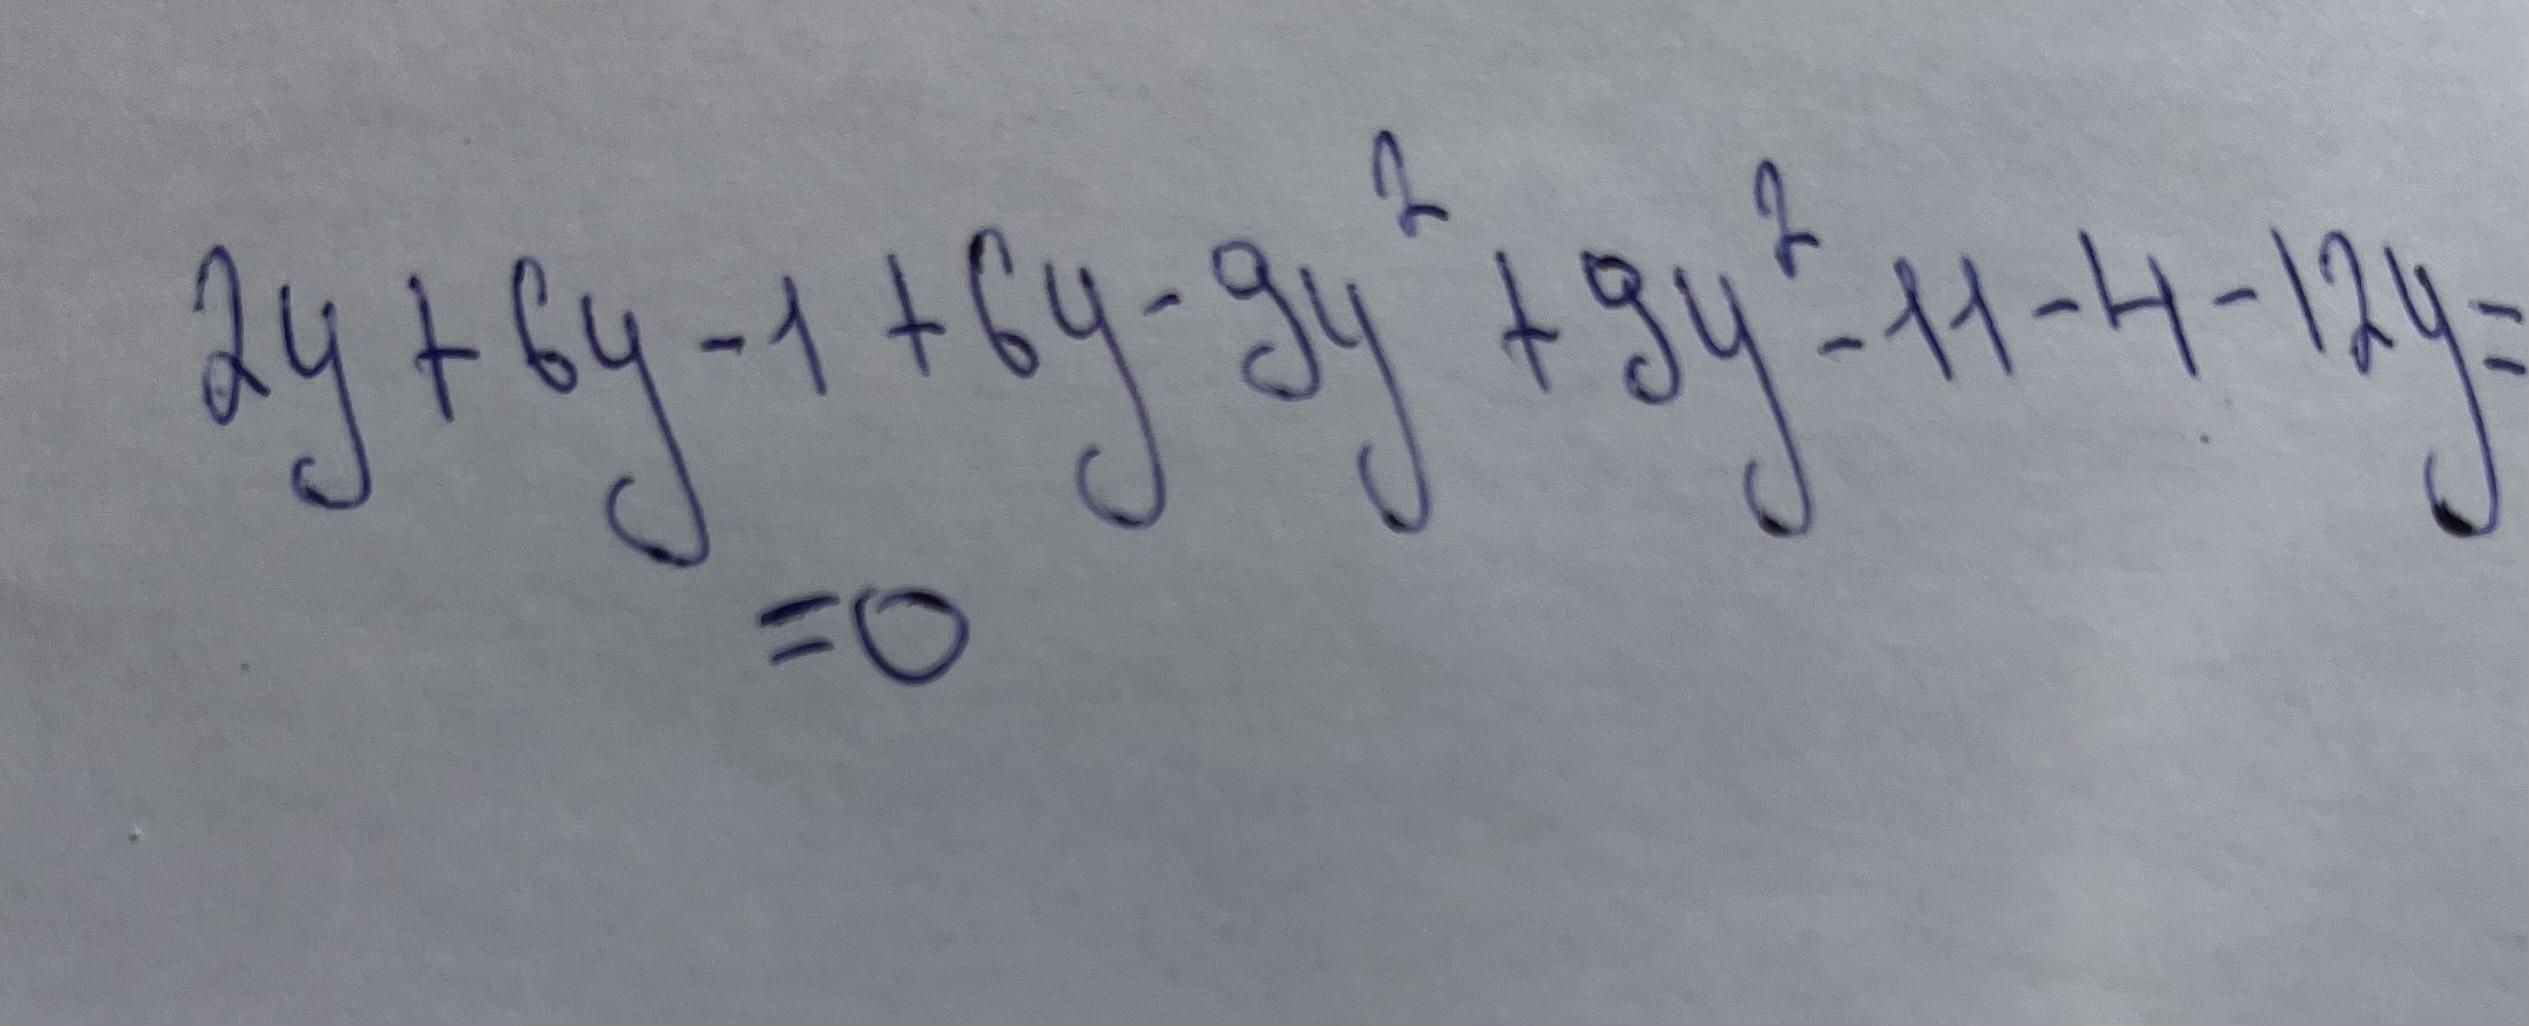 2y+6y-1+6y-9y²+9y²-11-4-12y=
=0